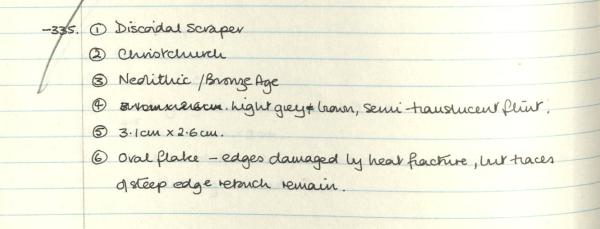 -335. ① Discoidal Scraper
② Christchurch
③ Neolithic / Bronze Age
④ light grey & brown, semi-translucent flint.
⑤ 3.1cm x 2.6cm.
⑥ Oval flake – edges damaged by heat fracture, but traces
of steep edge retouch remain.